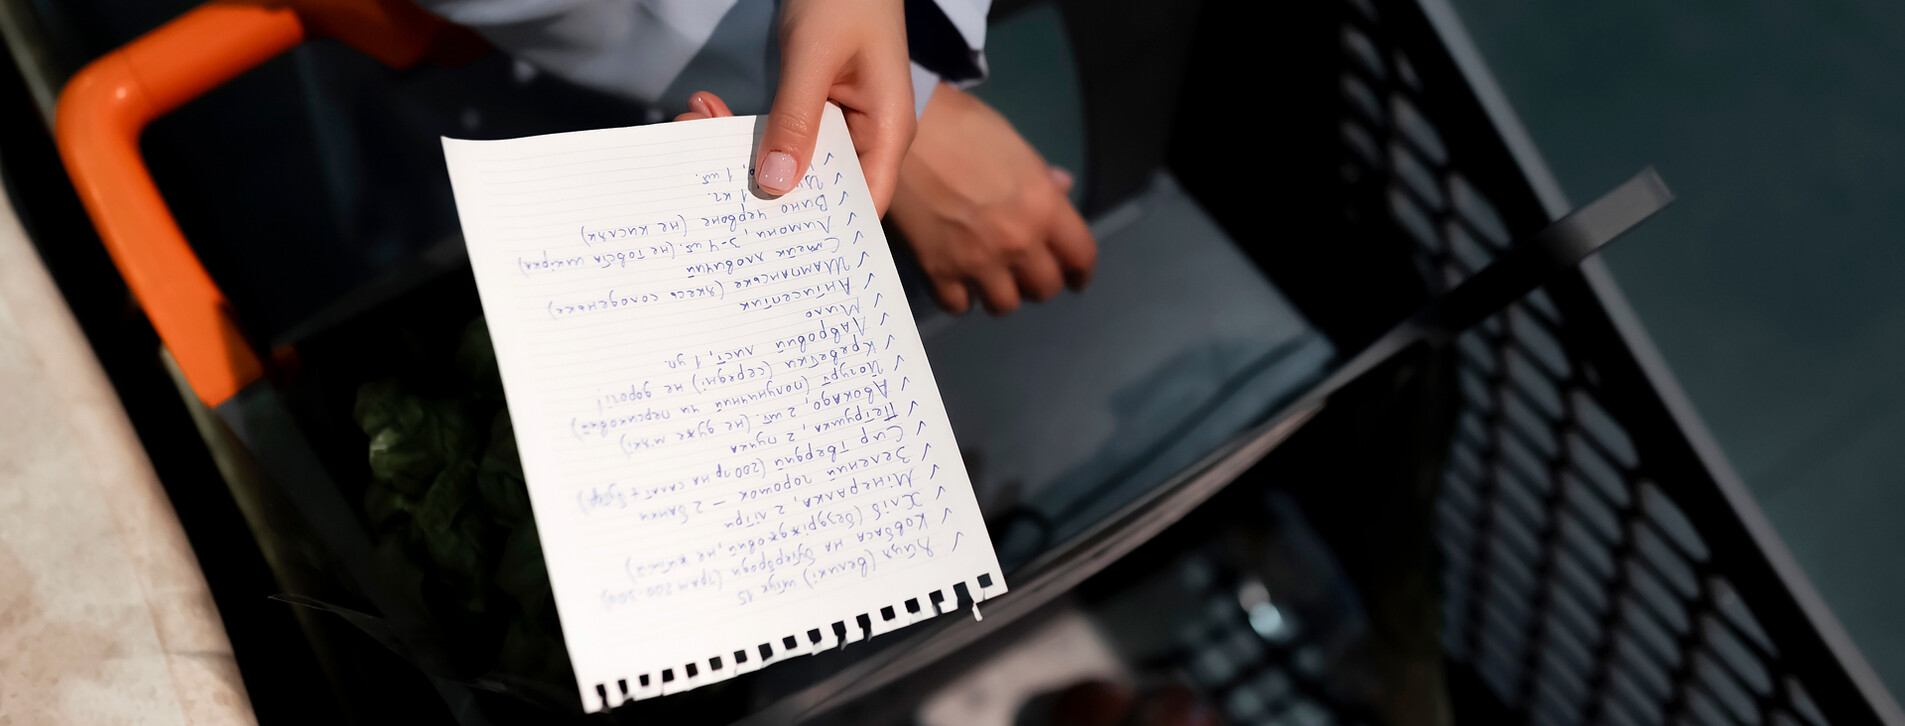 ✓ Яйця (великі) штук 15
✓ Ковбаса на бутерброди (грам 200-300)
✓ Хліб (бездріжджовий, не житній)
✓ Мінералка, 2 літри
✓ Зелений горошок – 2 банки
✓ Сир твердий (200 гр на салат +
✓ Петрушка, 2 пучка
✓ Авокадо, 2 шт. (не дуже мякі)
✓ Йогурт (полуничний чи персиковий)
✓ Креветки (середні) не дорогі!
✓ Лавровий лист, 1 уп.
✓ Мило
✓ Антисептик
✓ Шампанське (якесь солоденьке)
✓ Стейк яловичий
✓ Лимони, 3-4 шт. (не товста шкірка)
✓ Вино червоне (не кисляк)
✓ 1 кг.
✓ 1 шт.